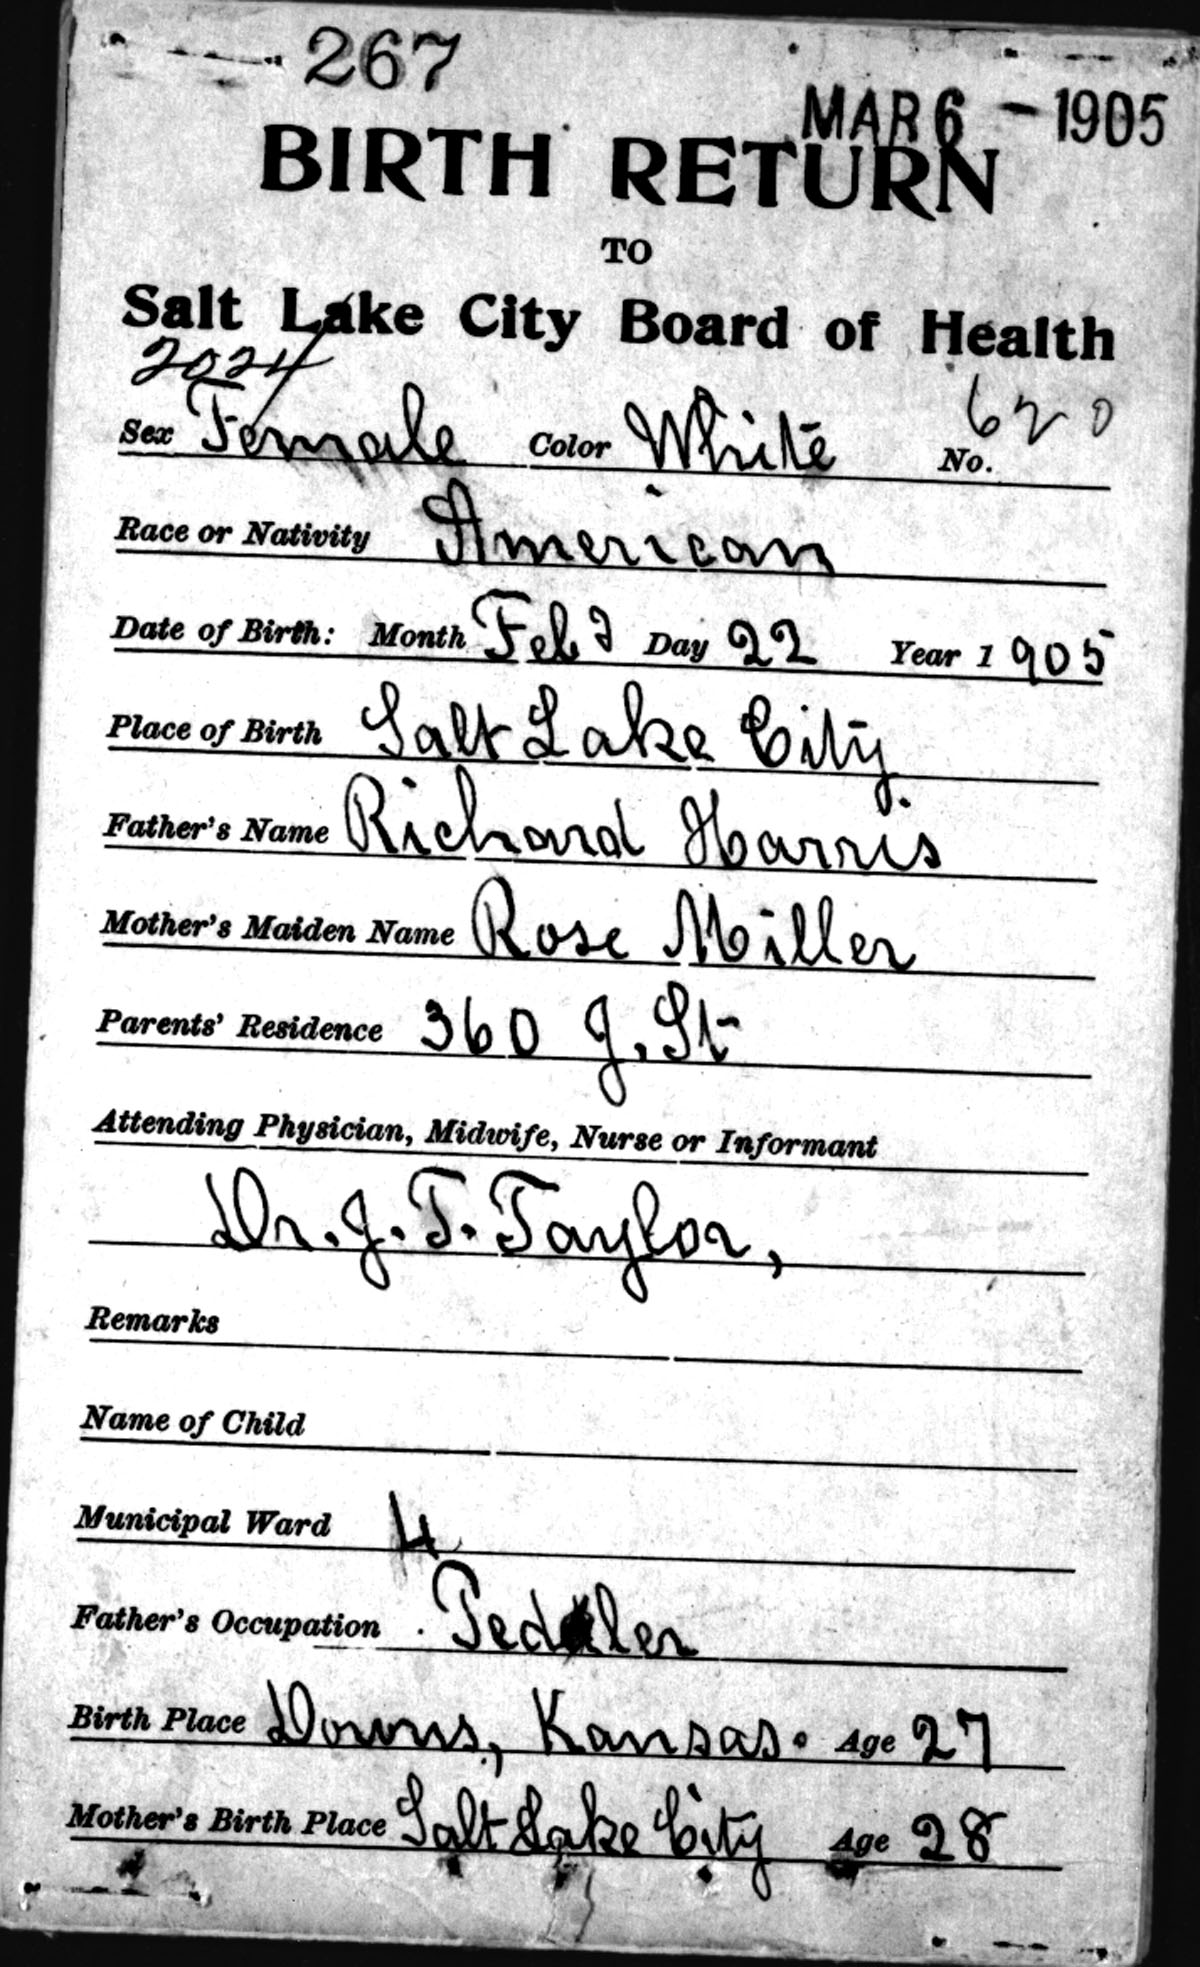 267
MAR 6 - 1905
BIRTH RETURN
TO
Salt Lake City Board of Health
2024
Sex Female Color White No. 620
Race or Nativity American
Date of Birth: Month Feb Day 22 Year 1905
Place of Birth Salt Lake City
Father's Name Richard Harris
Mother's Maiden Name Rose Miller
Parents' Residence 360 J. St
Attending Physician, Midwife, Nurse or Informant
Dr. J. T. Taylor,
Remarks
Name of Child
Municipal Ward 4
Father's Occupation Pedler
Birth Place Downs, Kansas. Age 27
Mother's Birth Place Salt Lake City Age 28